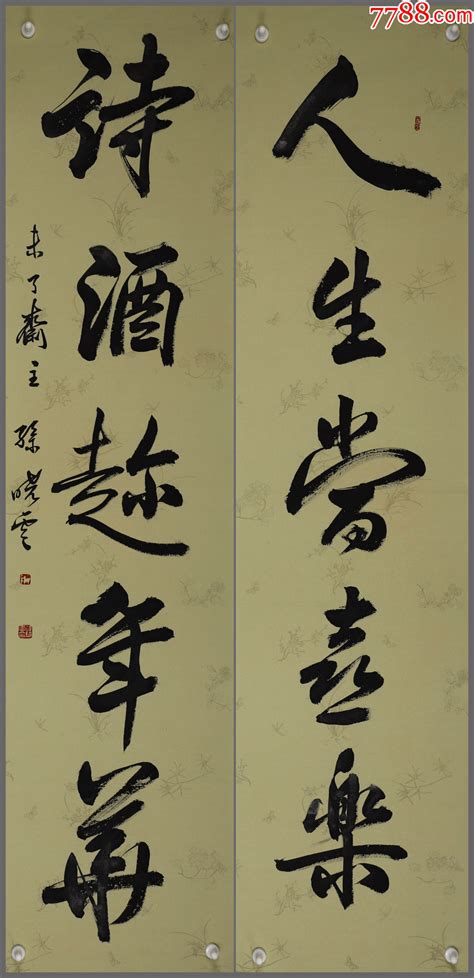 7788.com
人生當喜樂
詩酒趁年華
未了齋主 孫曉雲